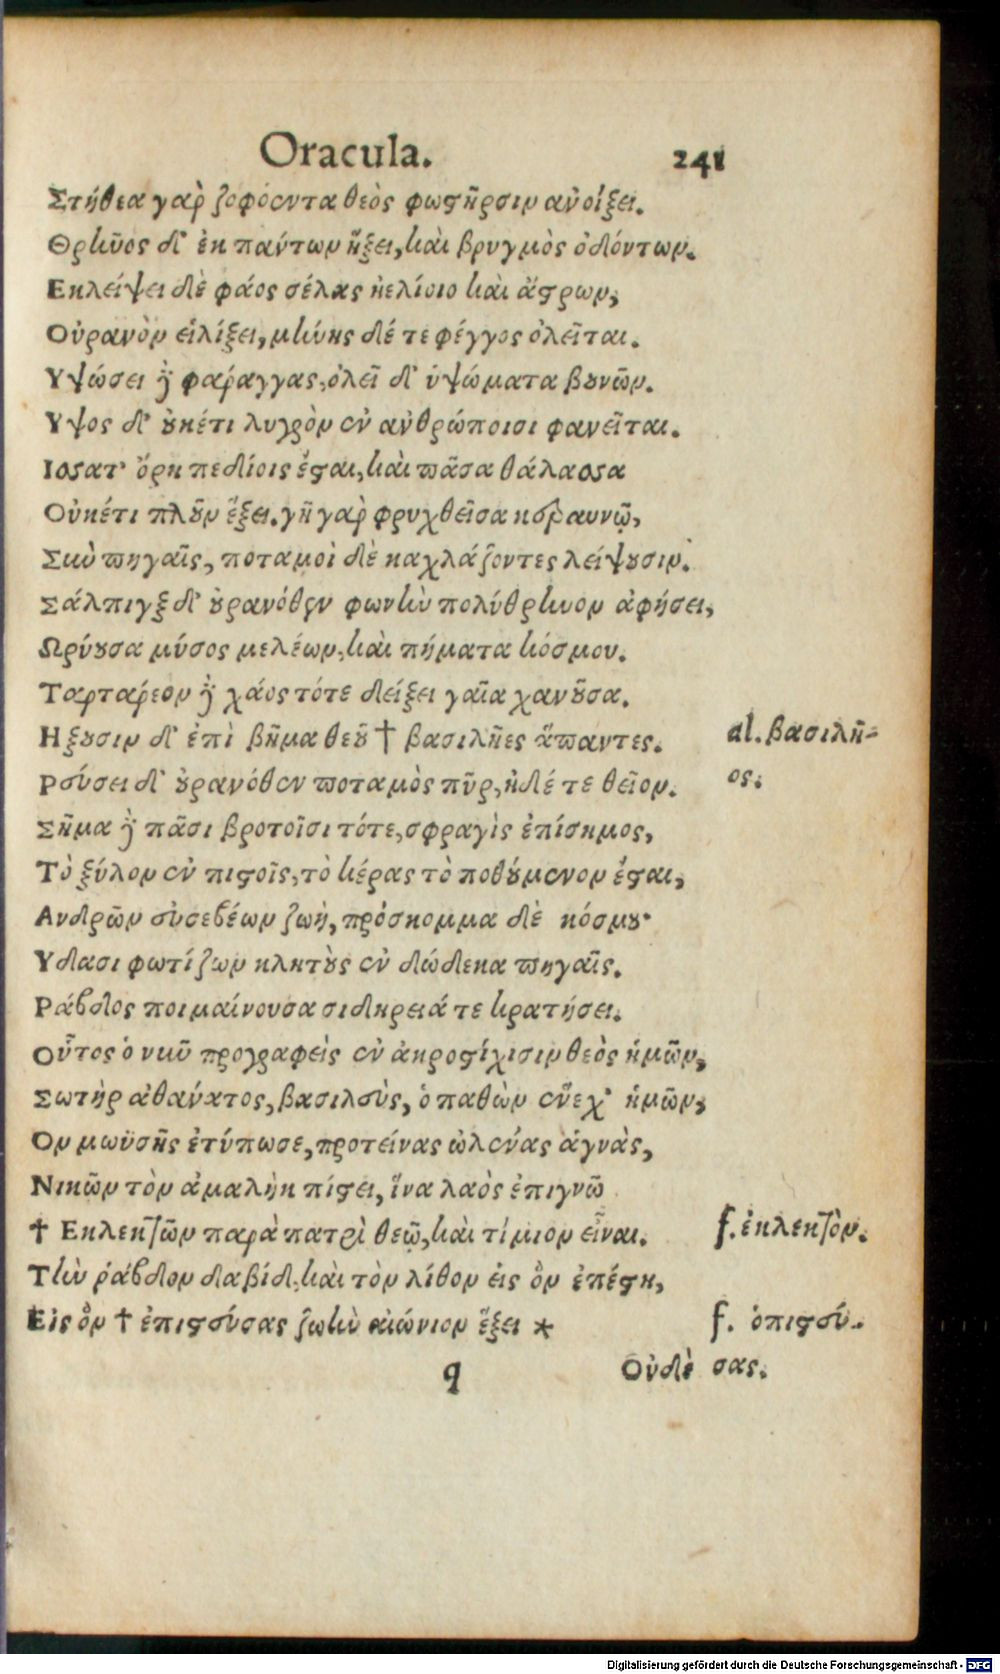 Oracula. 241
Στήθεα γαὶρ ζοφόεντα θεὸς φωστῆρσιν ἀνοίξει.
Θρῆνος δ' ἐκ πάντων ἥξει, καὶ βρυγμὸς ὀδόντων.
Εκλείψει δὲ φάος σέλας ἠελίοιο καὶ ἄστρων,
Οὐρανὸν εἱλίξει, μήνης δέ τε φέγγος ὀλεῖται.
Υψώσει ἢ φαράγγας, ὀλεῖ δ' ὑψώματα βουνῶν.
Υψος δ' οὐκέτι λυγρὸν ἐν ἀνθρώποισι φανεῖται.
Ισσατ' ὄρη πεδίοις ἔσται, καὶ πᾶσα θάλασσα
Οὐκέτι πλοῦν ἕξει. γῆ γὰρ φρυχθεῖσα κεραυνῷ,
Σὺν πηγαῖς, ποταμοὶ δὲ καχλάζοντες λείψουσιν.
Σάλπιγξ δ' οὐρανόθεν φωνὴν πολύθρηνον ἀφήσει,
Ωρύουσα μύσος μελέων, καὶ πήματα κόσμου.
Ταρταρέον ἢ χάος τότε δείξει γαῖα χανοῦσα.
Ηξουσιν δ' ἐπὶ βῆμα θεοῦ † βασιλῆες ἅπαντες. al. βασιλῆ-
Ρεύσει δ' οὐρανόθεν ποταμὸς πῦρ, ἠδέ τε θεῖον. ος.
Σῆμα ἢ πᾶσι βροτοῖσι τότε, σφραγὶς ἐπίσημος,
Τὸ ξύλον ἐν πιστοῖς, τὸ κέρας τὸ ποθούμενον ἔσται,
Ανδρῶν εὐσεβέων ζωὴ, πρόσκομμα δὲ κόσμου·
Υδασι φωτίζων κλητοὺς ἐν δώδεκα πηγαῖς.
Ράβδος ποιμαίνουσα σιδηρειά τε κρατήσει.
Οὗτος ὁ νῦν προγραφεὶς ἐν ἀκροστίχισιν θεὸς ἡμῶν,
Σωτὴρ ἀθάνατος, βασιλεὺς, ὁ παθὼν ἕνεχ' ἡμῶν,
Ον μωϋσῆς ἐτύπωσε, προτείνας ὠλένας ἁγνὰς,
Νικῶν τὸν ἀμαλὴκ πίστει, ἵνα λαὸς ἐπιγνῶ
† Εκλεκτῶν παρὰ πατρὶ θεῷ, καὶ τίμιον εἶναι. f. ἐκλεκτὸν.
Τὴν ῥάβδον δαβίδ, καὶ τὸν λίθον εἰς ὃν ἐπέστη,
Εἰς ὃν † ἐπιστεύσας ζωὴν αἰώνιον ἕξει * f. ὁπιστεύ-
q Οὐδὲ σας.
Digitalisierung gefördert durch die Deutsche Forschungsgemeinschaft - DFG